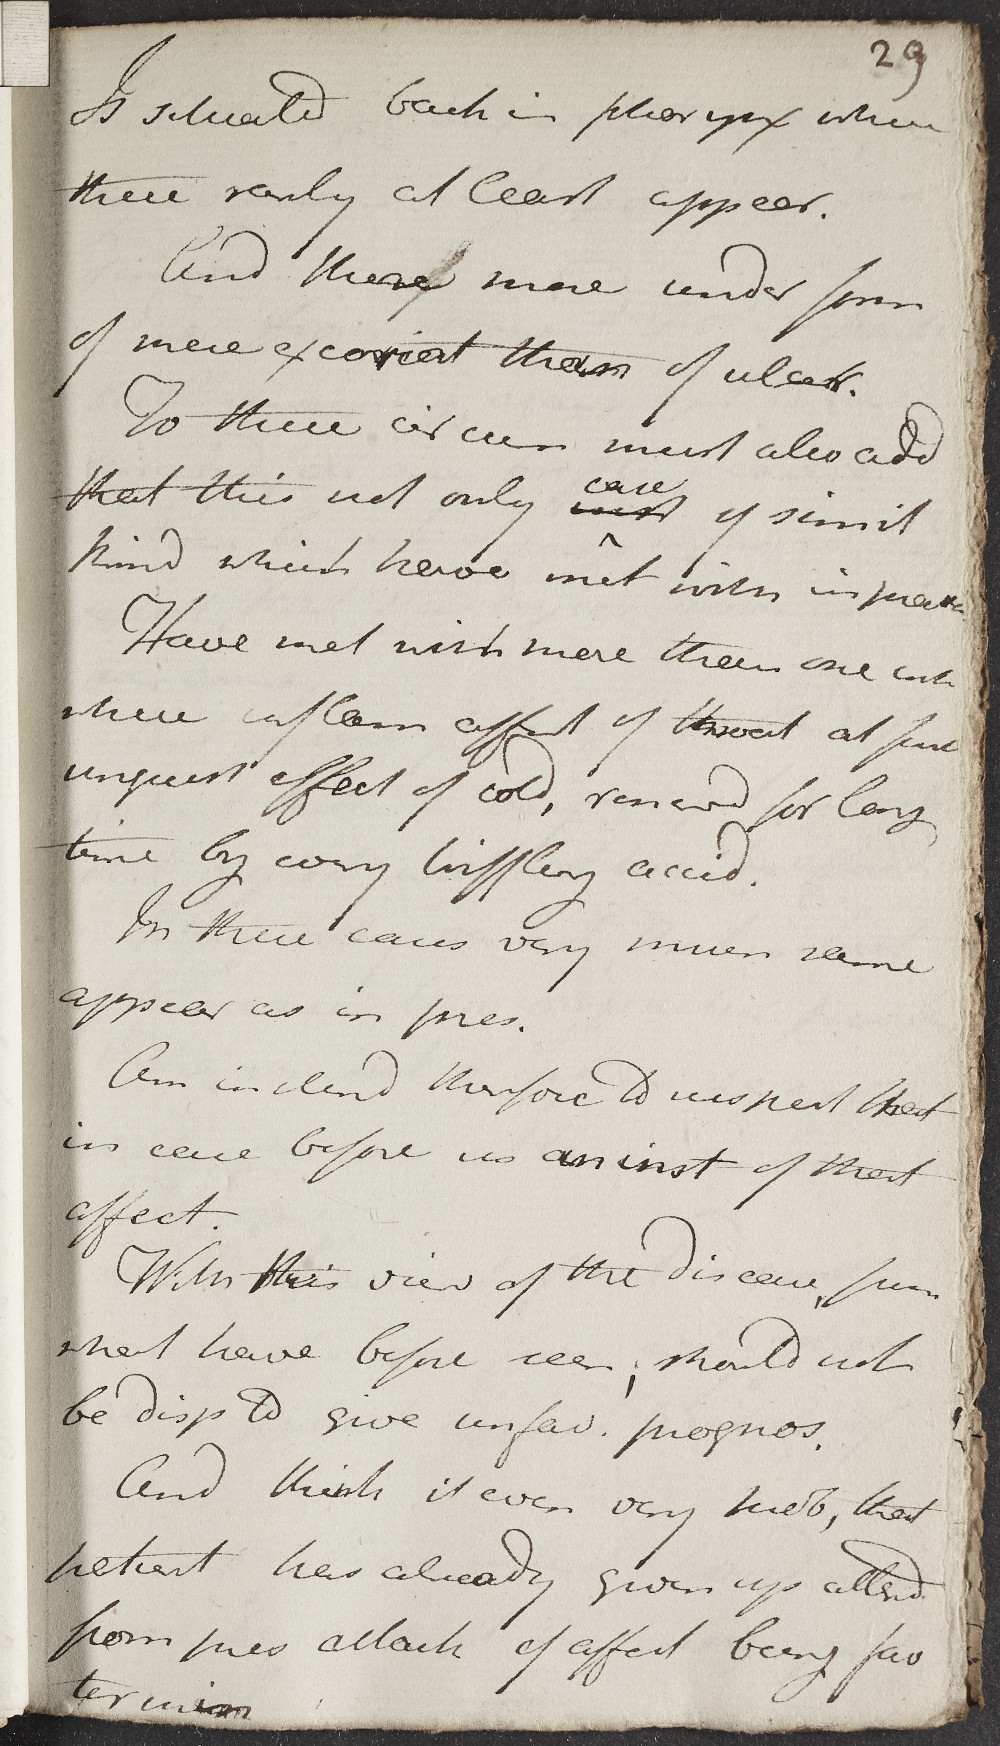 29
Is situated back in pharynx where
these rarly at least appear.
And there more under form
of mere excoriat than of ulcer.
To these circum must also add
that this not only case of simil
kind which have met with in pract
Have met with more than one
where inflam affect of throat at first
unquest effect of cold, renewd for long
time by very triffling accid.
In these cases very much same
appear as in pres.
Am inclend therefore to suspect that
in case before us an inst of that
affect.
With this view of the disease, from
what have before seen, should not
be disp to give unfav. prognos.
And think it even very prob, that
patient has already given up attend
from pres attack of affect being fav
termin